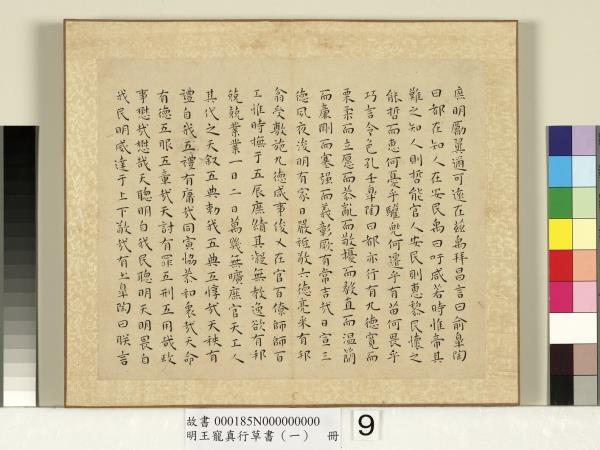 庶明勵翼邇可遠在茲禹拜昌言曰俞皋陶
曰都在知人在安民禹曰吁咸若時惟帝其
難之知人則哲能官人安民則惠黎民懷之
能哲而惠何憂乎驩兜何遷乎有苗何畏乎
巧言令色孔壬皋陶曰都亦行有九德寬而
栗柔而立愿而恭亂而敬擾而毅直而溫簡
而廉剛而塞强而義彰厥有常吉哉日宣三
德夙夜浚明有家日嚴祗敬六德亮采有邦
翕受敷施九德咸事俊乂在官百僚師師百
工惟時撫于五辰庶績其凝無教逸欲有邦
兢兢業業一日二日萬幾無曠庶官天工人
其代之天叙五典勑我五典五惇哉天秩有
禮自我五禮有庸哉同寅協恭和衷哉天命
有德五服五章哉天討有罪五刑五用哉政
事懋哉懋哉天聰明自我民聰明天明畏自
我民明威達于上下敬哉有土皋陶曰朕言
故書 000185N000000000
明王寵真行草書（一）　冊
9